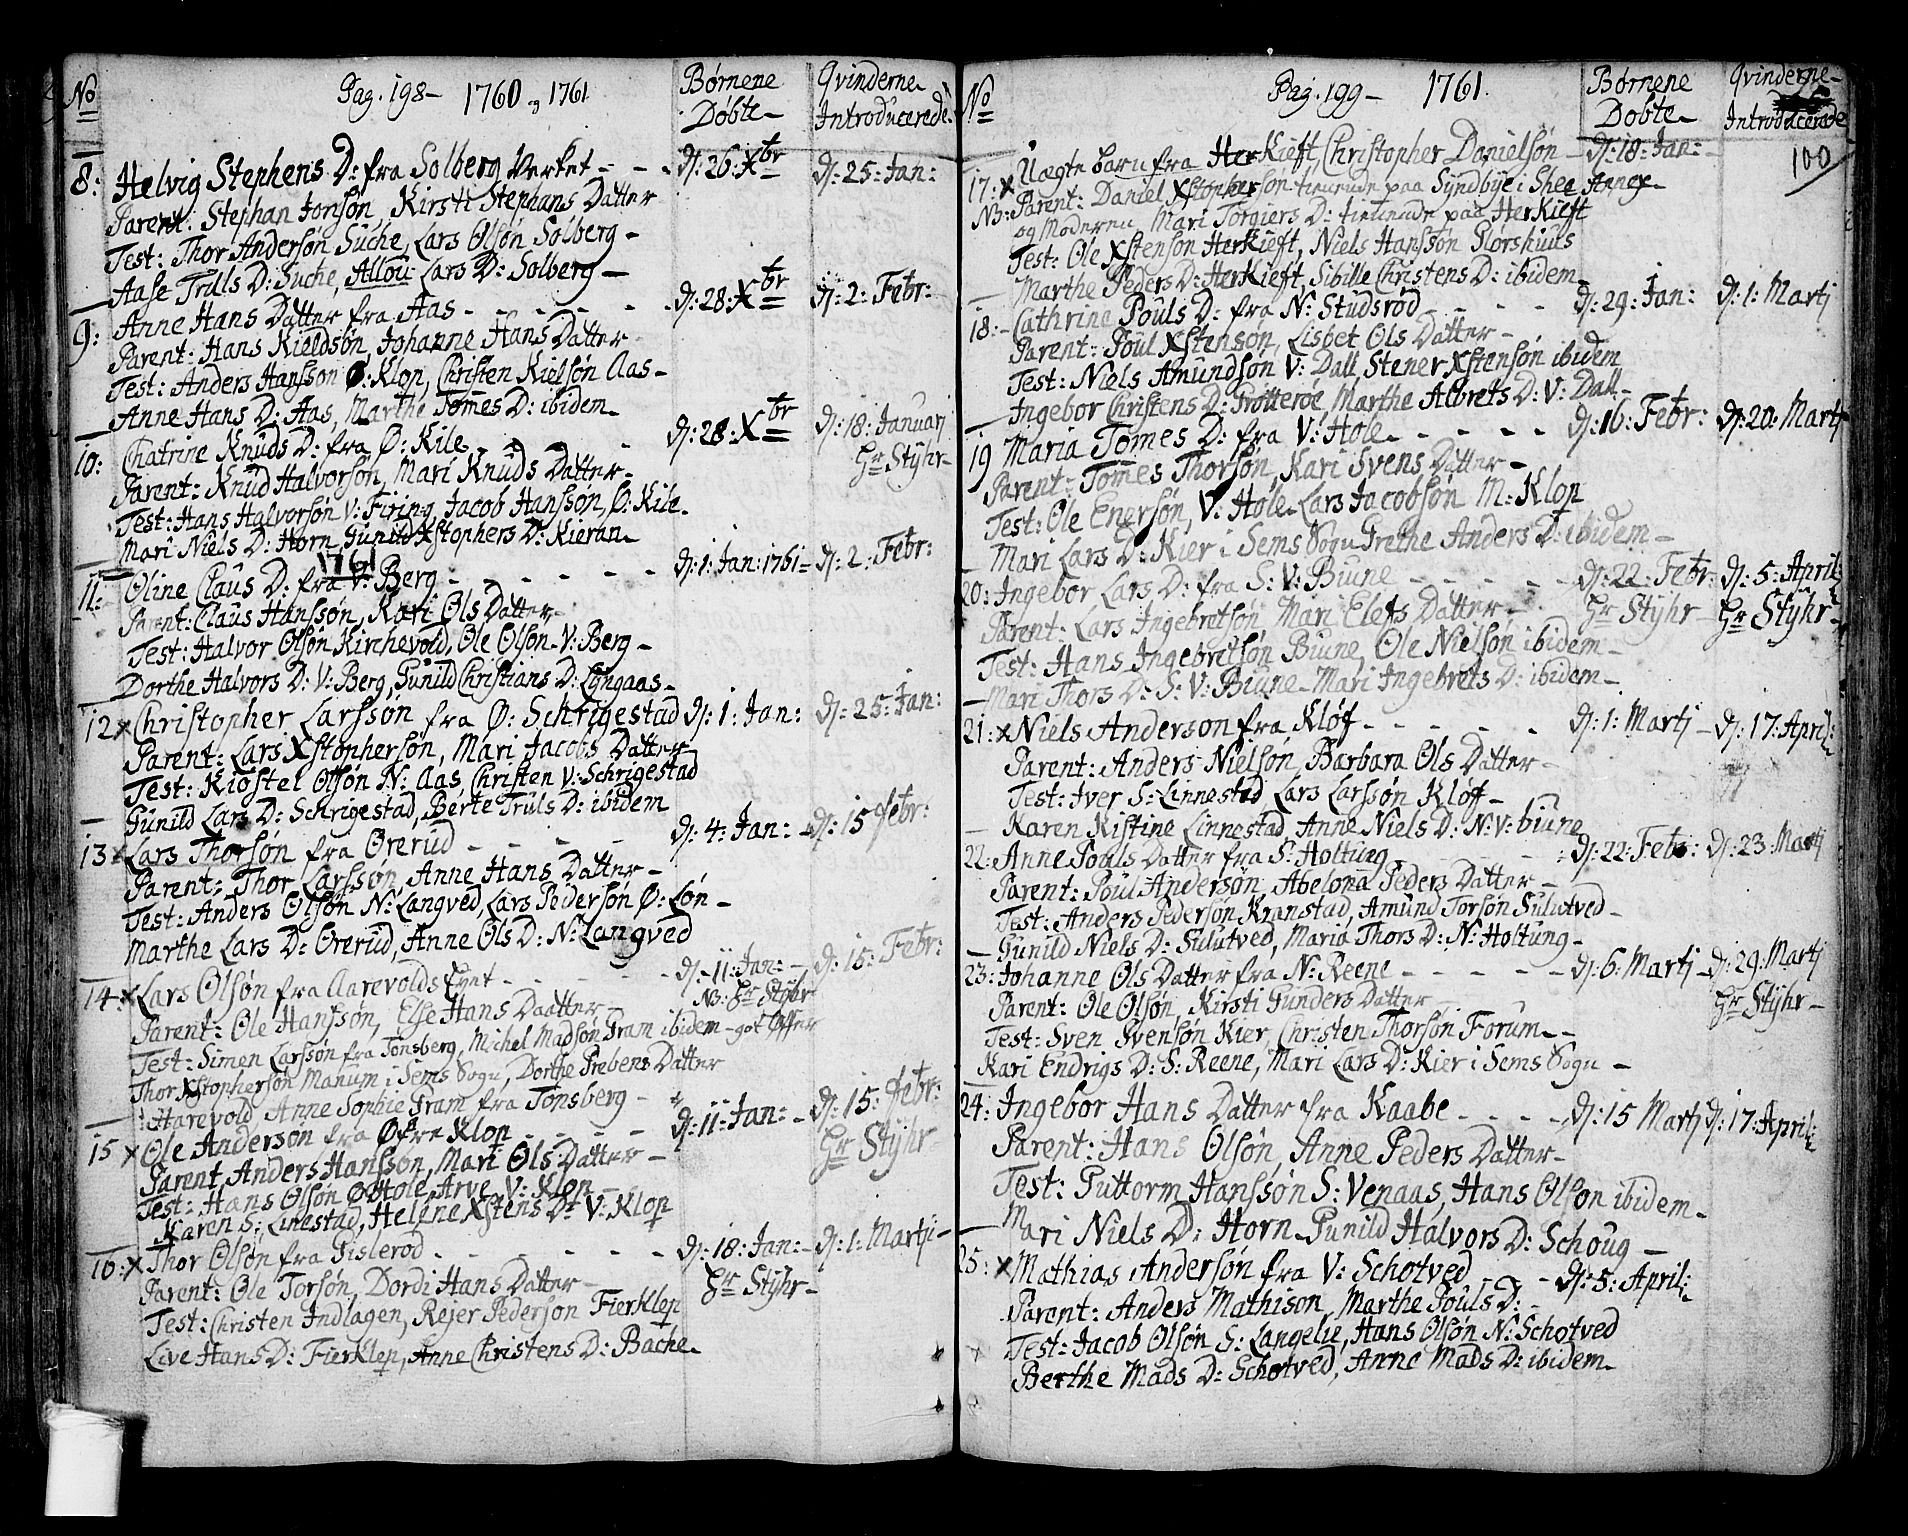 No Pag. 198– 1760 og 1761 Børnene Døbte– Qvinderne Introducerede
8: Helvig Stephens D: fra Solberg Verket – – dj: 26: Xbr dj: 25: Jan:
Parent: Stephan Jonsøn, Kirsti Stephans Datter
Test: Thor Andersøn Suche, Lars Olsøn Solberg –
Aase Trulls D: Suche, Allou Lars D: Solberg –
9: Anne Hans Datter fra Aas – – – – dj: 28: Xbr dj: 2: Febr:
Parent: Hans Kieldsøn, Johanne Hans Datter
Test: Anders Hansson Ø: Klop, Christen Kielsøn Aas –
Anne Hans D: Aas, Marthe Tomes D: ibidem –
10: Chatrine Knuds D: fra Ø: Kile – – – dj: 28: Xbr dj: 18: Januarj
Hr Styhr –
Parent: Knud Halvorsøn, Mari Knuds Datter –
Test: Hans Halvorsøn V: Firing, Jacob Hansson, Ø: Kile –
Mari Niels D: Horn, Gunild Xstophers D: Kieran –
1761
11: Oline Claus D: fra V: Berg – – – – dj: 1: Jan: 1761 – dj: 2: Febr:
Parent: Claus Hanssøn, Kari Ols Datter –
Test: Halvor Olsøn Kirchevold, Ole Olsøn V: Berg –
Dorthe Halvors D: V: Berg, Gunild Christians D: Lyngaas –
12 x Christopher Larssøn fra Ø: Schrigestad dj: 1: Jan: dj: 25: Jan:
Parent: Lars Xstophersøn, Mari Jacobs Datter
Test: Kiostel Olsøn N: Aas, Christen V: Schrigestad
Gunild Lars D: Schrigestad, Berte Truls D: ibidem
13 x Lars Thorsøn fra Ørerud – – – – dj: 4: Jan: – dj: 15 Febr:
Parent: Thor Larssøn, Anne Hans Datter –
Test: Anders Olsøn N: Langved, Lars Pedersøn Ø: Løn –
Marthe Lars D: Ørerud, Anne Ols D: N: Langved
14 x Lars Olsøn fra Aarevolds Eynt – – – – dj: 11: Jan: – dj: 15: Febr:
NB: Hr Styhr
Parent: Ole Hanssøn, Else Hans Daatter –
Test: Simen Larssøn fra Tønsberg, Michel Madsøn Gram ibidem – got Offer
Thor Xstophersøn Manum i Sems Sogn, Dorthe Prebens Datter
Harevold, Anne Sophie Gram fra Tønsberg –
15 x Ole Andersøn fra Øfre Klop – – – – dj: 11: Jan: – dj: 15: Febr:
Hr Styhr –
Parent, Anders Hanssøn, Mari Ols Datter –
Test: Hans Olsøn Ø: Hole, Arve V: Klop –
Karen S: Linestad, Helene Xstens Dr V: Klop
16: x Thor Olsøn fra Gislerød – – – – – dj: 18: Jan: – dj: 1: Martji –
Hr Styhr –
Parent: Ole Torsøn, Dordi Hans Datter –
Test: Christen Indlagen, Rejer Pedersøn Fierklep
Live Hans D: Fierklep, Anne Christens D: Bache –
No Pag. 199 – 1761. Børnene Døbte – Qvinderne Introducerede
100
17: x Uægte barn fra HerKieft, Christopher Danielsøn – dj: 18: Jan: –
NB: Parent: Daniel Xstophersøn tienende paa Syndbye i Shee Annex –
og Moderen Mari Torgiers D: tienende paa HerKieft
Test: Ole Xstensøn HerKieft, Niels Hanssøn Gjorshuus
Marthe Peders D: HerKieft, Sibille Christens D: ibidem –
18: – Cathrine Pouls D: fra N: Studsrød – – – dj: 29: Jan: dj: 1: Martj
Parent: Poul Xstensøn, Lisbet Ols Datter –
Test: Niels Amundsøn V: Dall, Stener Xstensøn ibidem
Ingebor Christens D: Trotterøe, Marthe Albrets D: V: Dall –
19 Maria Tomes D: fra V: Hole – – – – – dj: 16: Febr: dj: 20: Martj
Parent: Tomes Thorsøn, Kari Svens Datter –
Test: Ole Enersøn, V: Hole – Lars Jacobsøn M: Klop
Mari Lars D: Kier i Sems Sogn Grethe Anders D: ibidem –
20: Ingebor Lars D: fra S: V: Biune – – – – dj: 22: Febr: dj: 5: April:
Hr Styhr – Hr Styhr –
Parent: Lars Ingebretsøn Mari Elefs Datter –
Test: Hans Ingebretsøn Biune, Ole Nielsøn ibidem –
Mari Thors D: S: V: Biune – Mari Ingebrets D: ibidem –
21: x Niels Andersøn fra Kløf – – – – – dj: 1: Martj – dj: 17: April:
Parent: Anders Nielsøn, Barbara Ols Datter –
Test: Iver S: Linnestad, Lars Larssøn Kløf –
Karen Kistine Linnestad, Anne Niels D: N: V: biune
22: Anne Pouls Datter fra S: Holtung – – – dj: 22: Febr: dj: 23: Martj
Parent: Poul Andersøn, Abelona Peders Datter –
Test: Anders Pedersøn Kranstad, Amund Torsøn Sulutved –
Gunild Niels D: Sulutved, Maria Thors D: N: Holtung –
23: Johanne Ols Datter fra N: Reene – – – – – dj: 6: Martj – dj: 29: Martj
Hr Styhr –
Parent: Ole Olsøn, Kirsti Gunders Datter –
Test: Sven Svensøn Kier, Christen Thorsøn Forum –
Kari Endrigs D: S: Reene, Mari Lars D: Kier i Sems Sogn –
24: Ingebor Hans Datter fra Kaabe – – – – dj: 15 Martj dj: 17: April:
Parent: Hans Olsøn, Anne Peders Datter –
Test: Guttorm Hanssøn S: Venaas, Hans Olsøn ibidem –
Mari Niels D: Horn – Gunild Halvors D: Schoug –
25: x Mathias Andersøn fra V: Schotved – – – dj: 5: April:
Parent: Anders Mathison, Marthe Pouls D: –
Test: Jacob Olsøn S: Langelie, Hans Olsøn N: Schotved
Berthe Mads D: Schotved, Anne Mads D: ibidem –